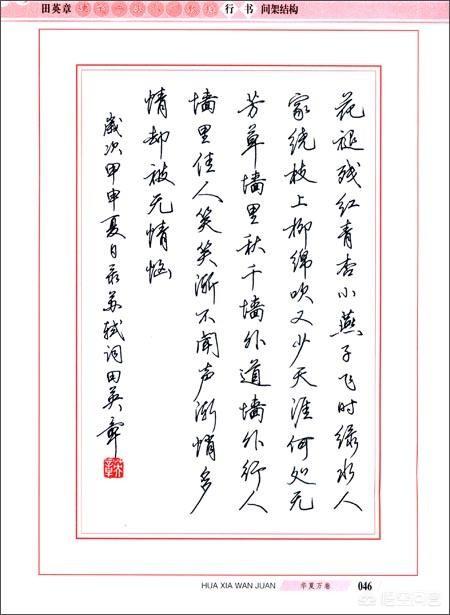 田英章
行书 间架结构
花褪残红青杏小燕子飞时绿水人
家绕枝上柳绵吹又少天涯何处无
芳草墙里秋千墙外道墙外行人
墙里佳人笑笑渐不闻声渐悄多
情却被无情恼
歲次甲申夏日录苏轼词田英章
HUA XIA WAN JUAN 华夏万卷 046
悟空问答